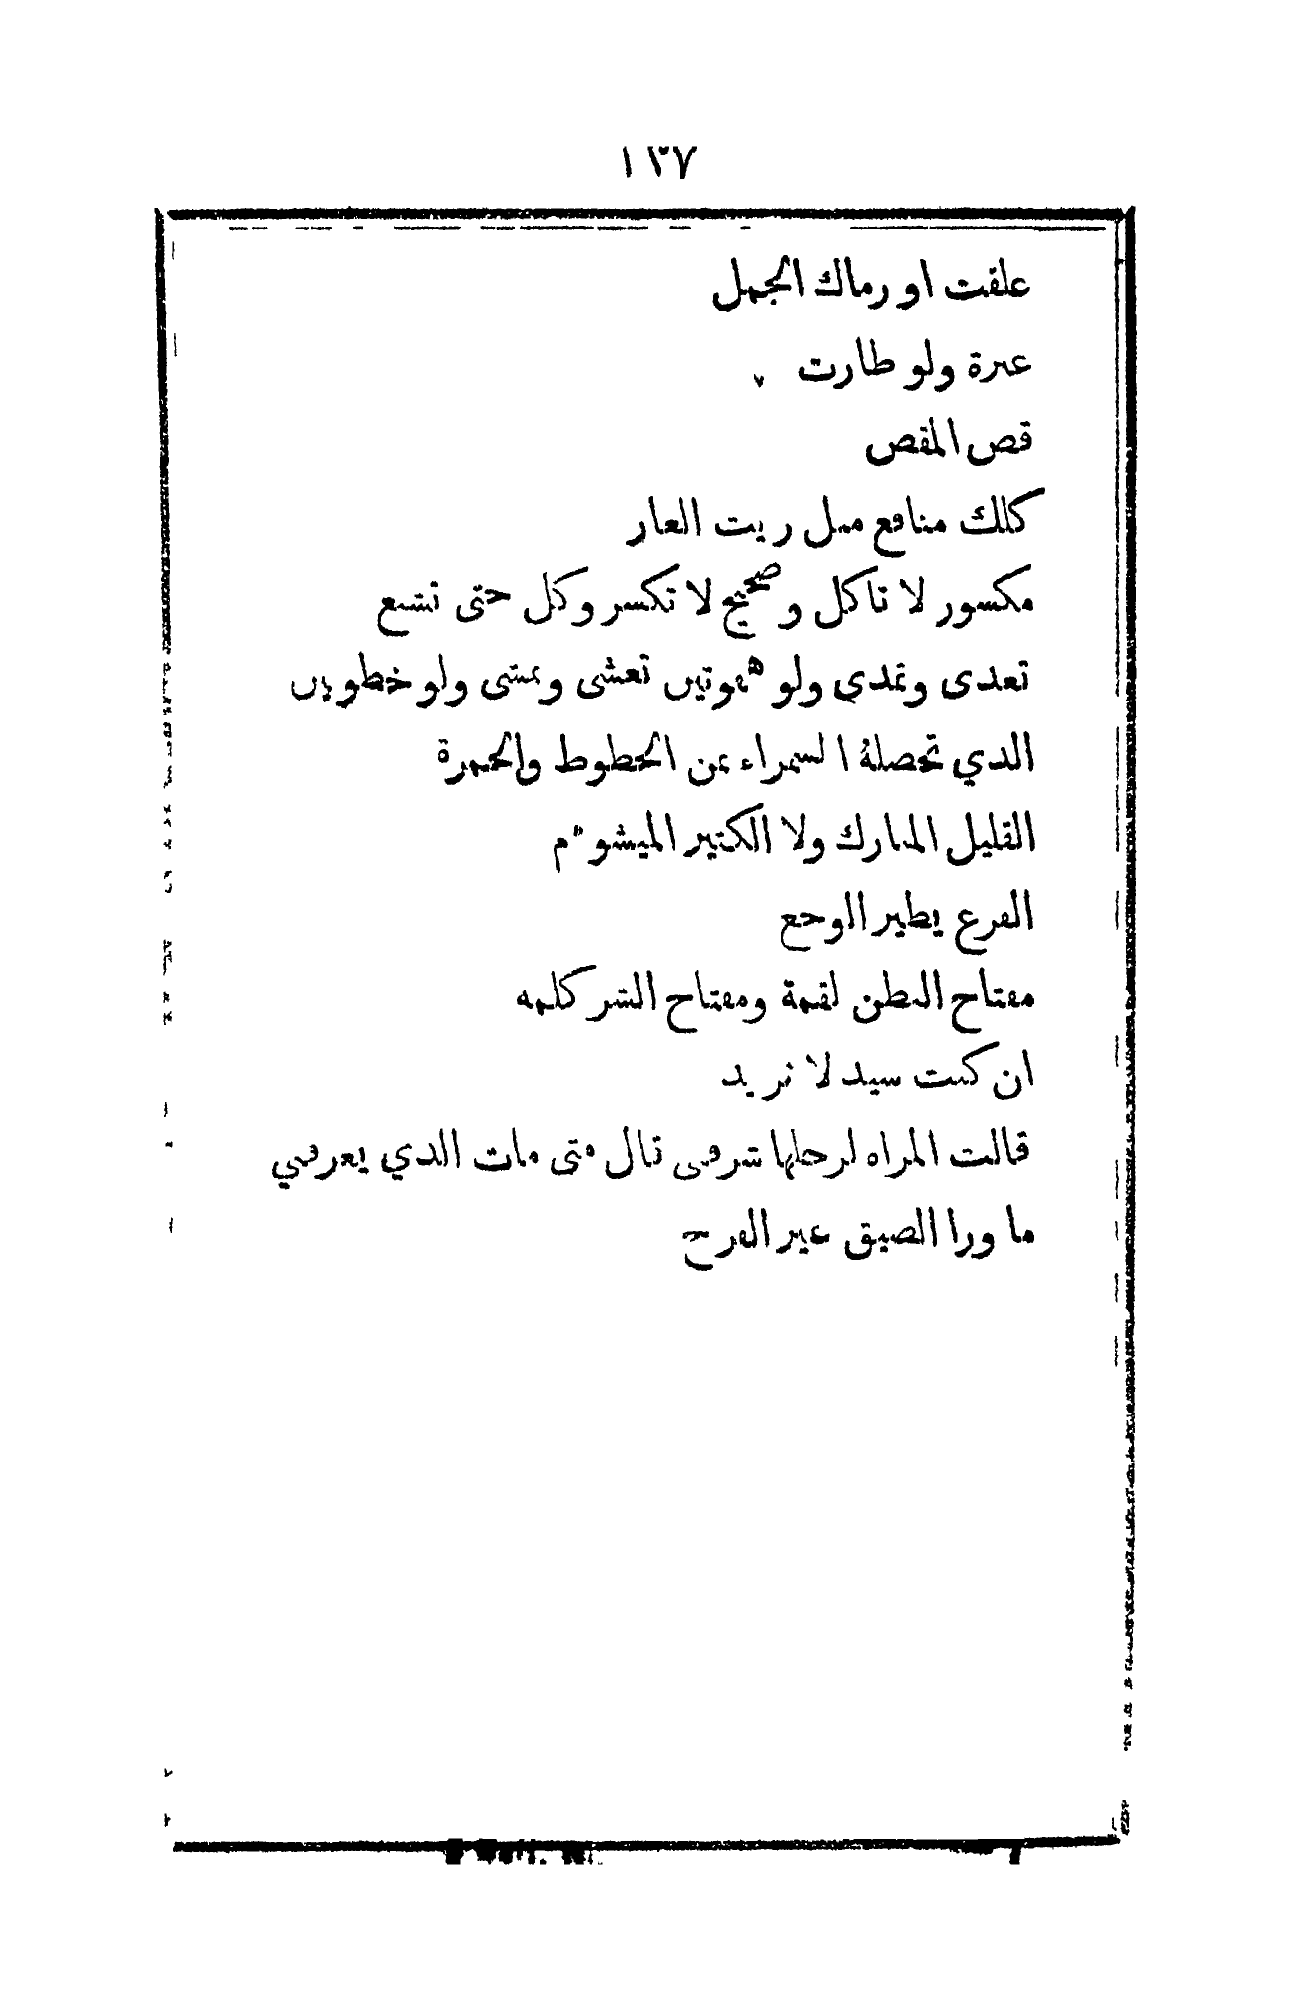 ١٣٧
علقت او رماك الجمل
عنزة ولو طارت
قص المقص
كلك منافع مثل زيت الغار
مكسور لا تاكل وصحيح لا تكسر وكل حتى تشبع
تغدى وتمدى ولو هموتين تعشى وتمشى ولو خطوتين
الذي تحصلهُ السمراء من الخطوط والحمرة
القليل المبارك ولا الكتير الميشوم
الفزع يطير الوجع
مفتاح البطن لقمة ومفتاح الشر كلمه
ان كنت سيد لا تزيد
قالت المراه لرجلها شرفني قال متى مات الذي يعرفني
ما ورا الضيق غير الفرج